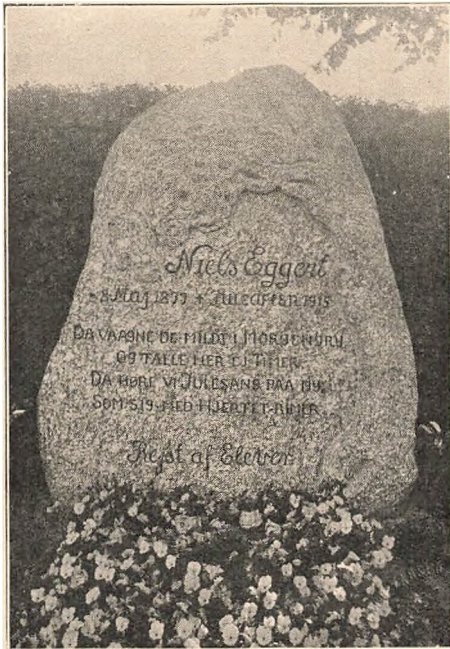 Niels Eggert
Maj 1877 + Juleaften 1915
DA VAAGNE DE MILDT I MORGENGRY
OG TÆLLE MER EJ TIMER
DA HØRE VI JULESANG PAA NY
SOM SIG MED HJERTET RIMER
Rejst af Elever